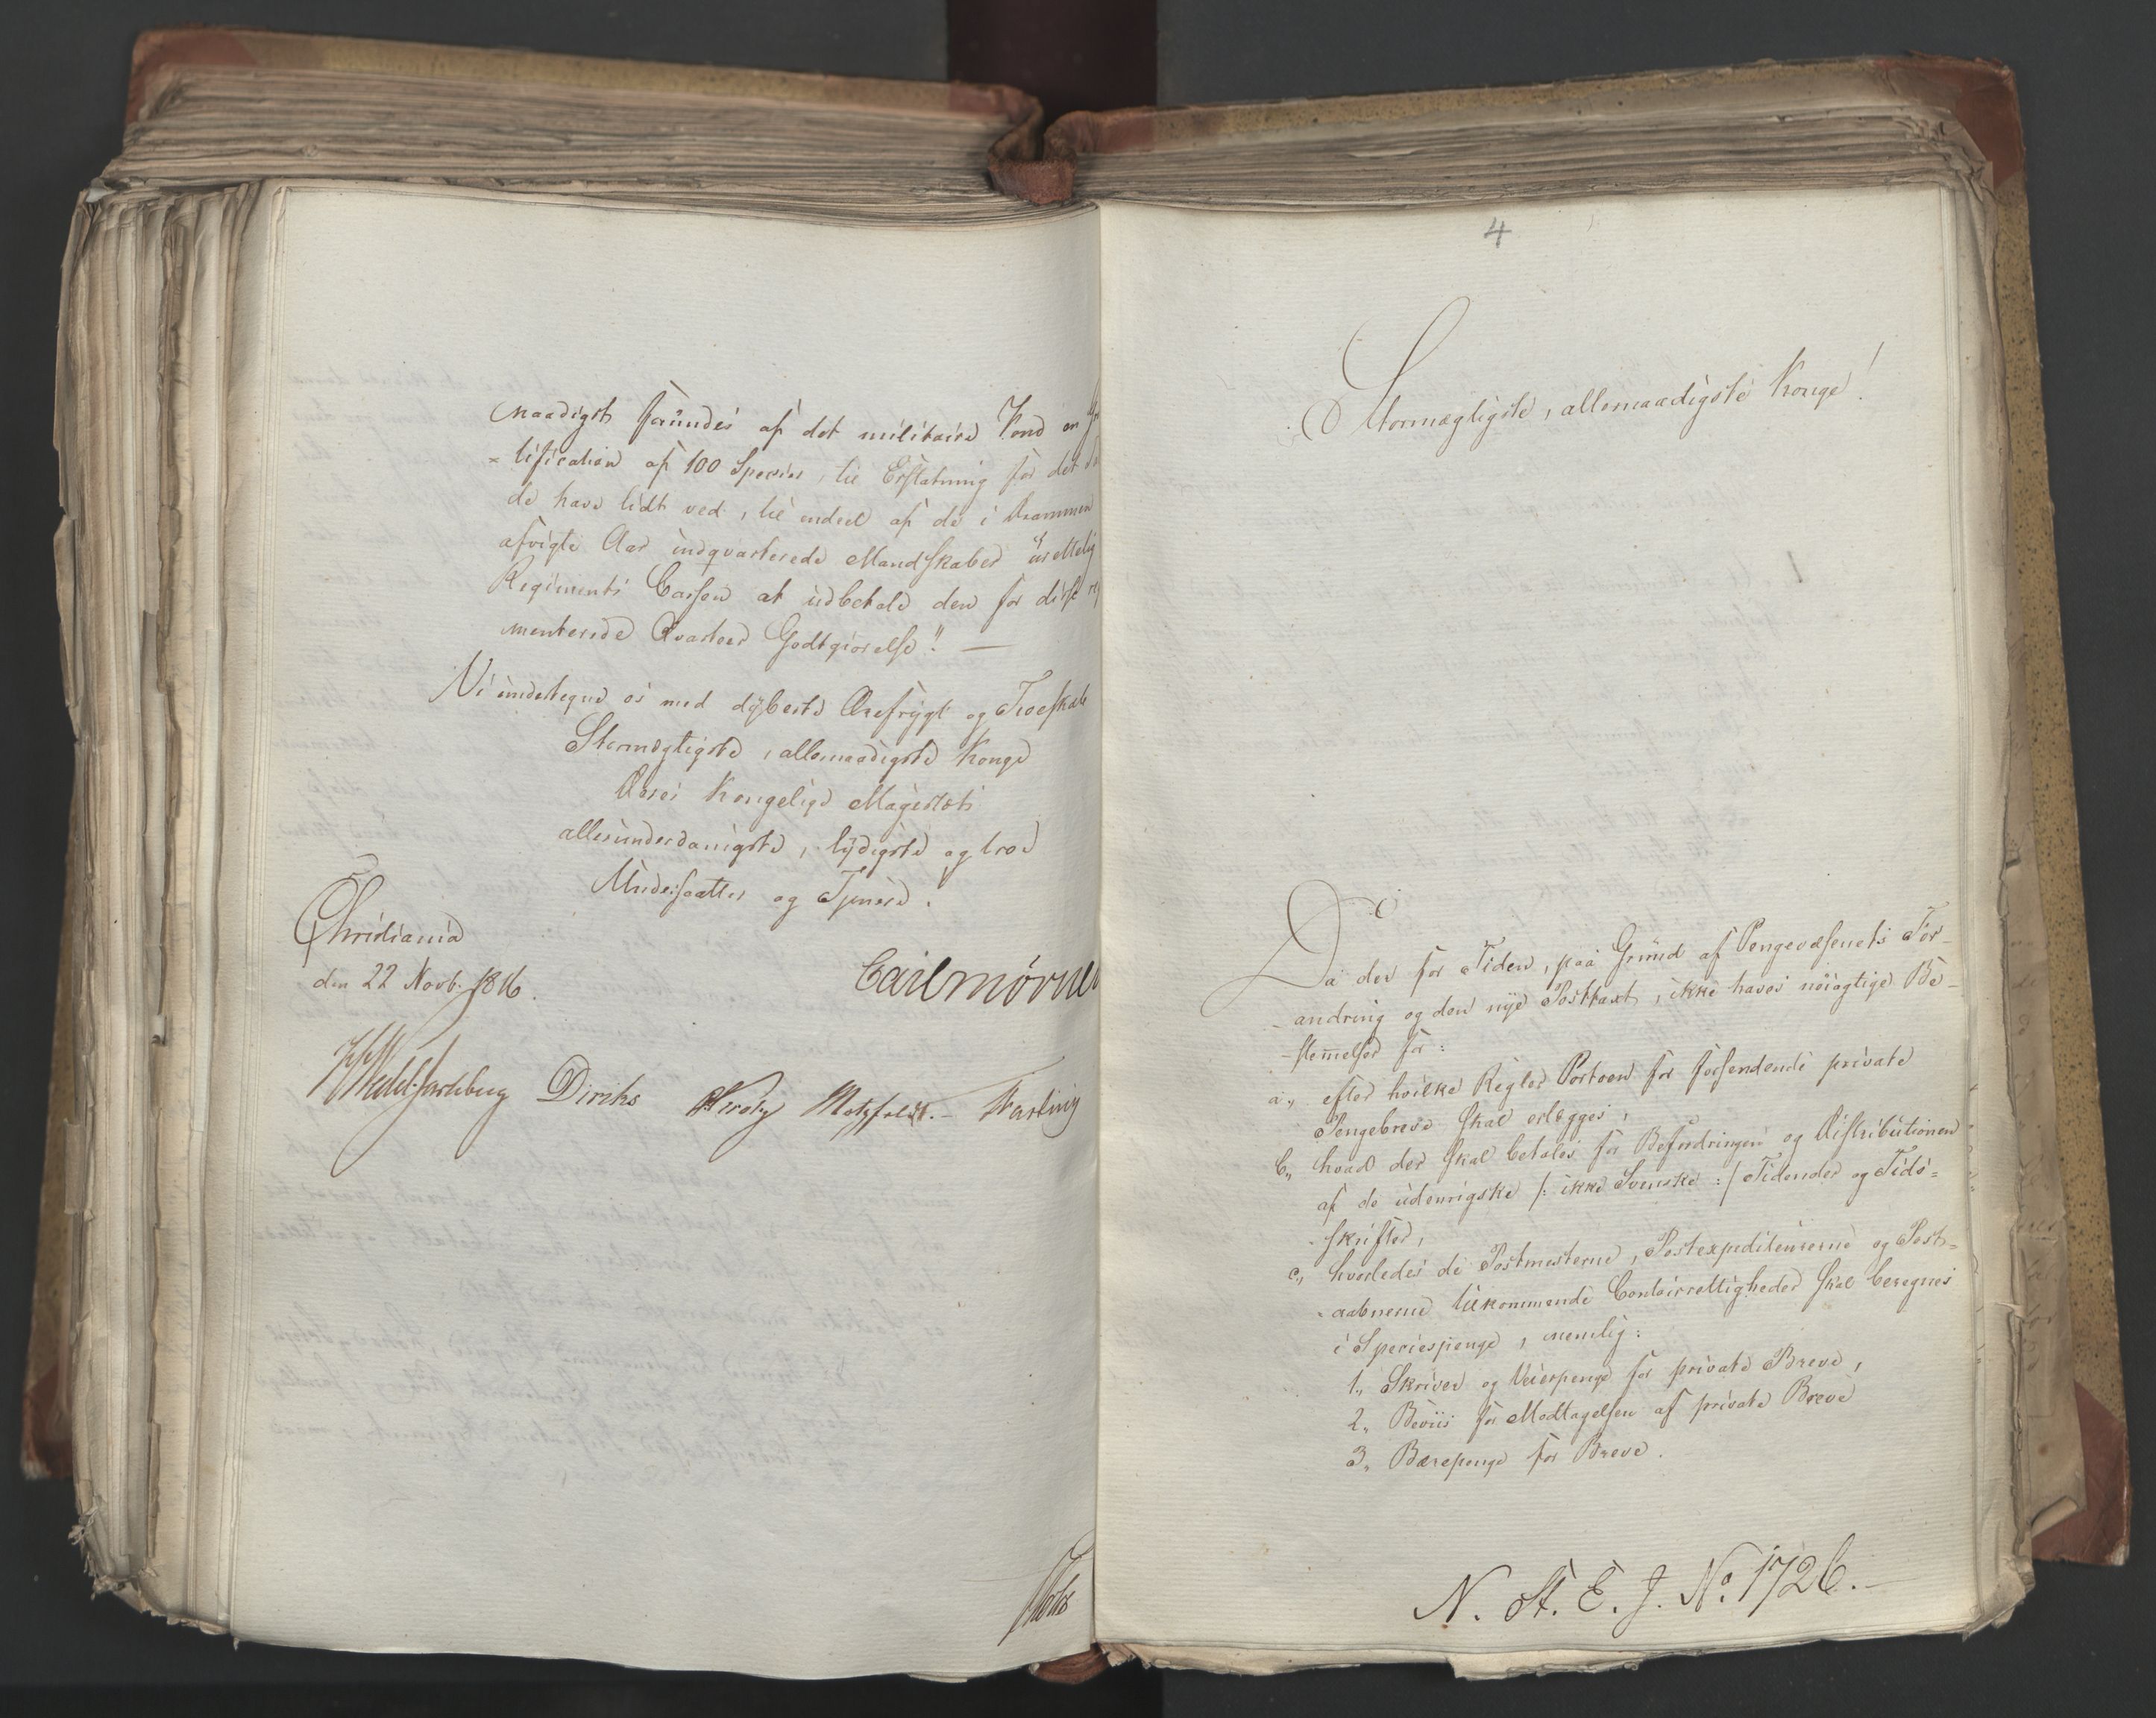 naadigst forundes af det militaire Fond en
tification af 100 Species, til Erstatning for det
de have lidt ved, til endeel af de i Drammen
afvigte Aar indqvarterede Mandskaber urettelig
Regiments Cassen at udbetale den for disse
menterede Qvarteer Godtgiörelse". —
Vi undertegne os med dybeste Ærefrygt og Troeskab
Stormægtigste, allernaadigste Konge
Deres Kongelige Majestæts
allerunderdanigste, lydigste og troe
Undersaatter og Tjenere.
Christiania
den 22 Novb. 1816.
Carl Mörner
Wedel Jarlsberg Diriks Krohg Motzfeldt. - Fasting
4
Stormægtigste, allernaadigste Konge!
Da der for Tiden, paa Grund af Pengevæsenets For-
-andring og den nye Posttaxt, ikke haves nöiagtige Be-
-stemmelser for:
a„ efter hvilke Regler Portoen for forsendende private
Pengebreve skal erlægges,
b„ hvad der skal betales for Befordringen og Distributionen
af de udenrigske /: ikke Svenske :/ Tidender og Tids-
-skrifter,
c„ hvorledes de Postmesterne, Postexpediteurerne og Post-
-aabnerne tilkommende Contoirrettigheder skal beregnes
i Speciespenge, nemlig:
1„ Skriver og Veierpenge for private Breve,
2„ Beviis for Modtagelsen af private Breve
3„ Bærepenge for Breve.
N. St. E. J. No. 1726. -